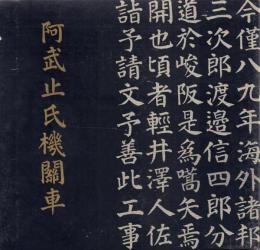 今僅八九年海外諸邦
三次郎渡邊信四郎分
道於峻阪是爲嚆矢焉
開也頃者輕井澤人佐
詣予請文予善此工事
阿武止氏機關車